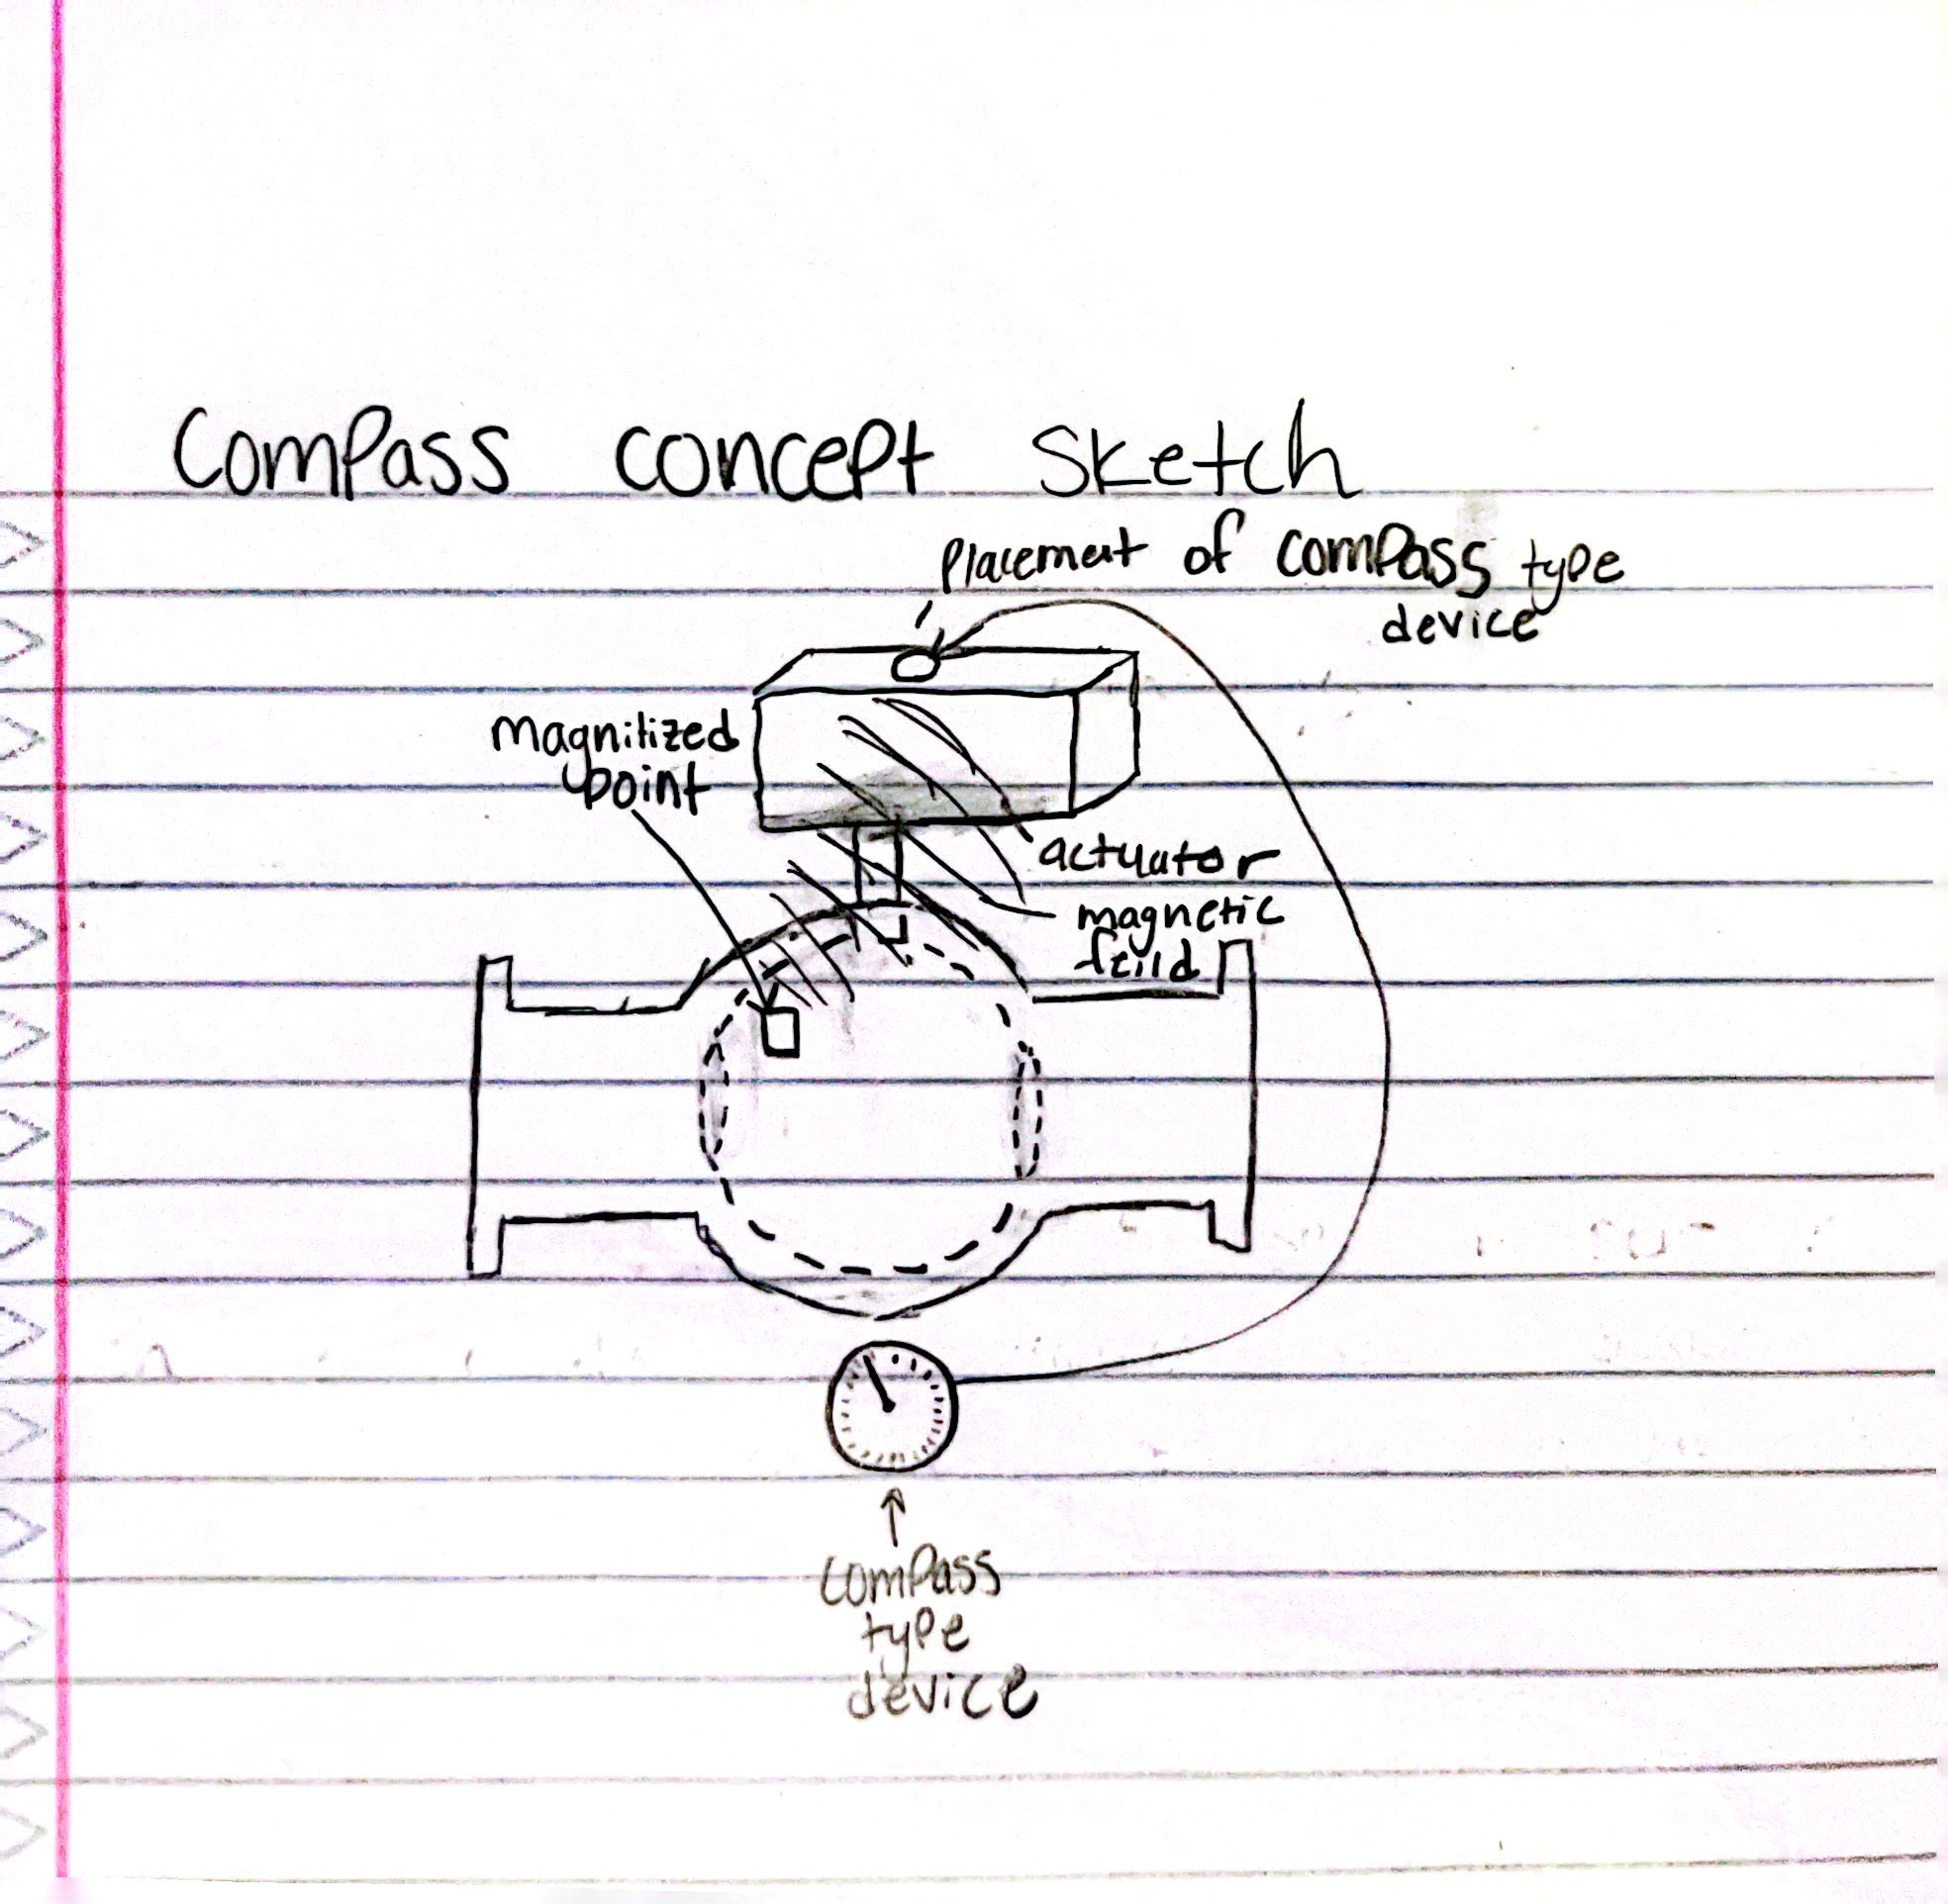 Compass concept sketch
Placement of compass type
device
magnitized
point
actuator
magnetic
feild
compass
type
device